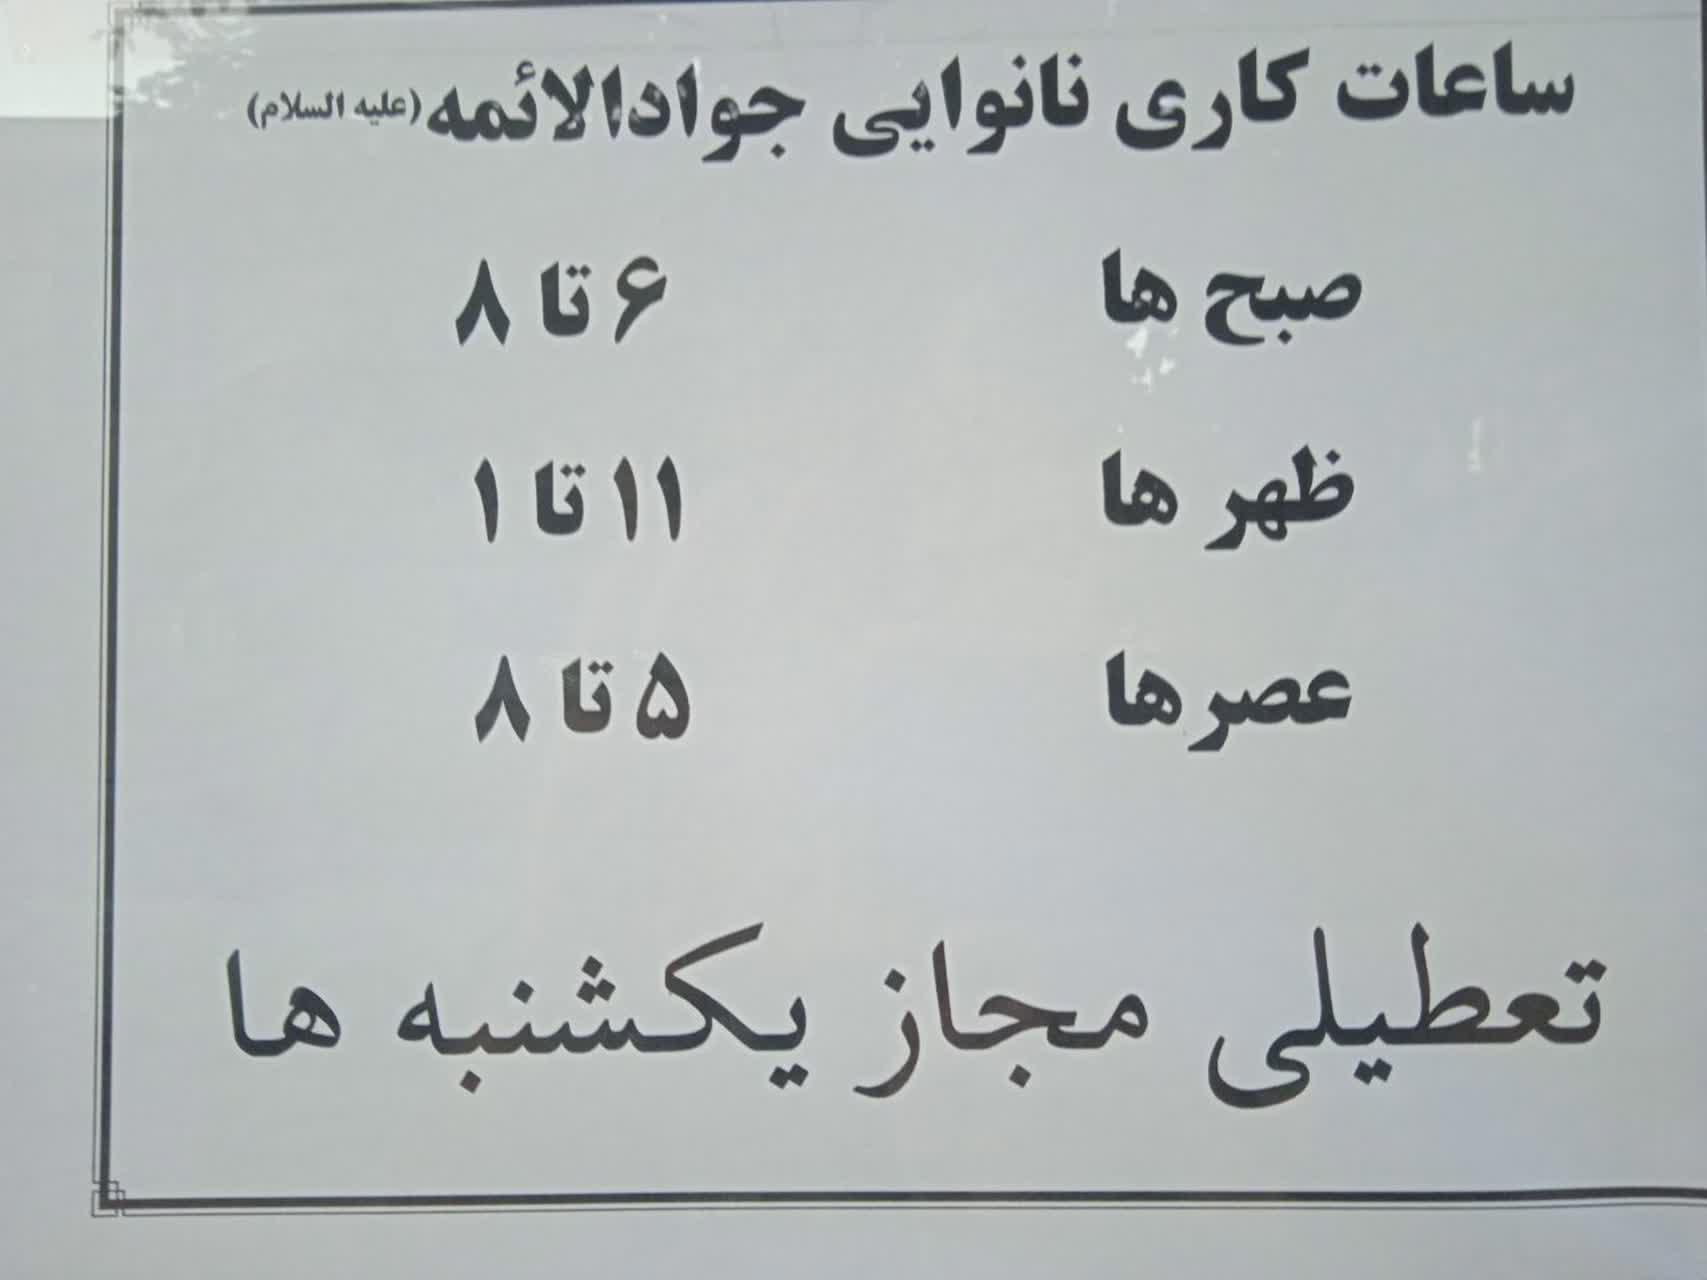 ساعات کاری نانوایی جوادالائمه (علیه السلام)
صبح ها ۶ تا ۸
ظهر ها ۱۱ تا ۱
عصرها ۵ تا ۸
تعطیلی مجاز یکشنبه ها